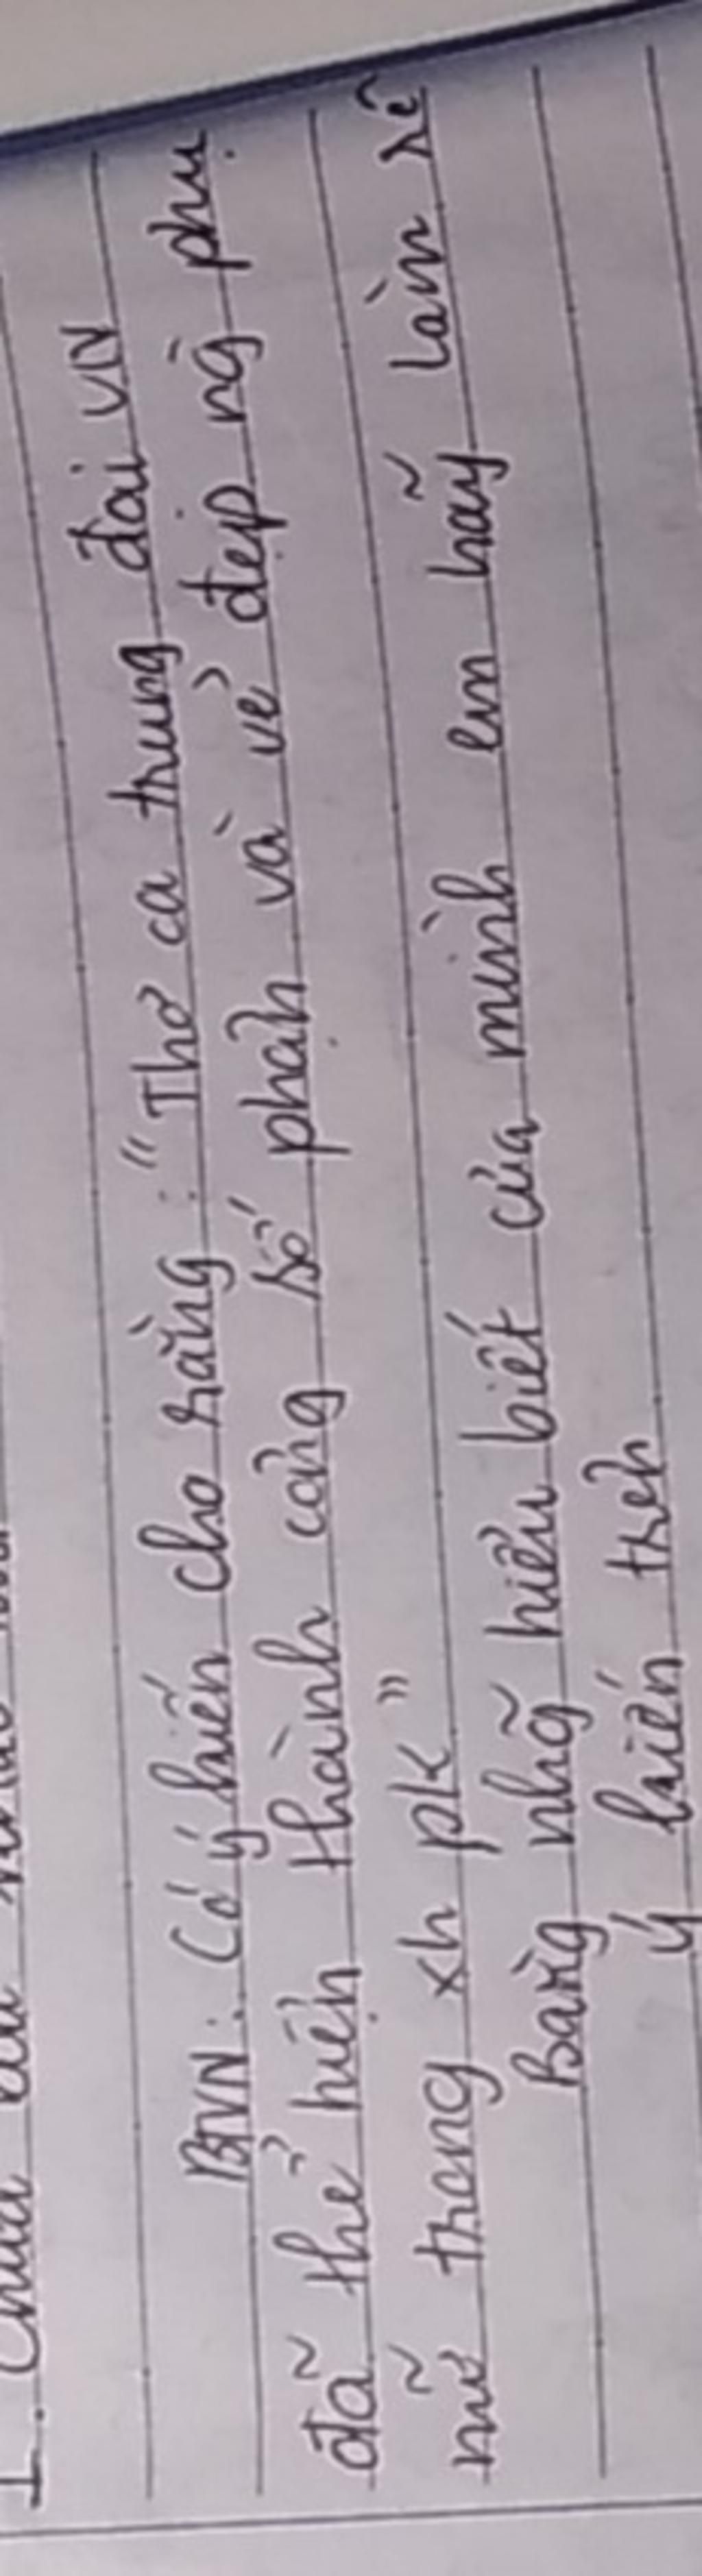 I. Chữa
BTVN: Có ý kiến cho rằng: "Thơ ca trung đại VN
đã thể hiện thành công số phận và vẻ đẹp ng phụ
nữ trong xh pk"
Bằng nhg hiểu biết của mình em hãy làm rõ
ý kiến trên